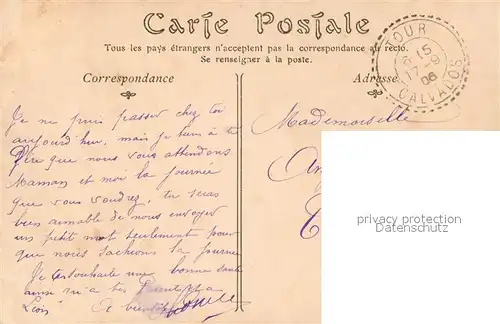 Carte Postale
Tous les pays étrangers n'acceptent pas la correspondance au recto.
Se renseigner à la poste.
Correspondance
Adresse
JOUR
6 15
17-9
06
CALVADOS
Je ne puis passer chez toi
aujourd'hui, mais je tiens à te
dire que nous vous attendons
Maman et moi la journée
que vous voudrez, tu serais
bien aimable de nous envoyer
un petit mot seulement pour
que nous sachions la journée
Je te souhaite une bonne santé
ainsi qu'à tes Parents et à
Léon. A bientôt
Mademoiselle
privatmaster
www.oldthing.de/privatmaster